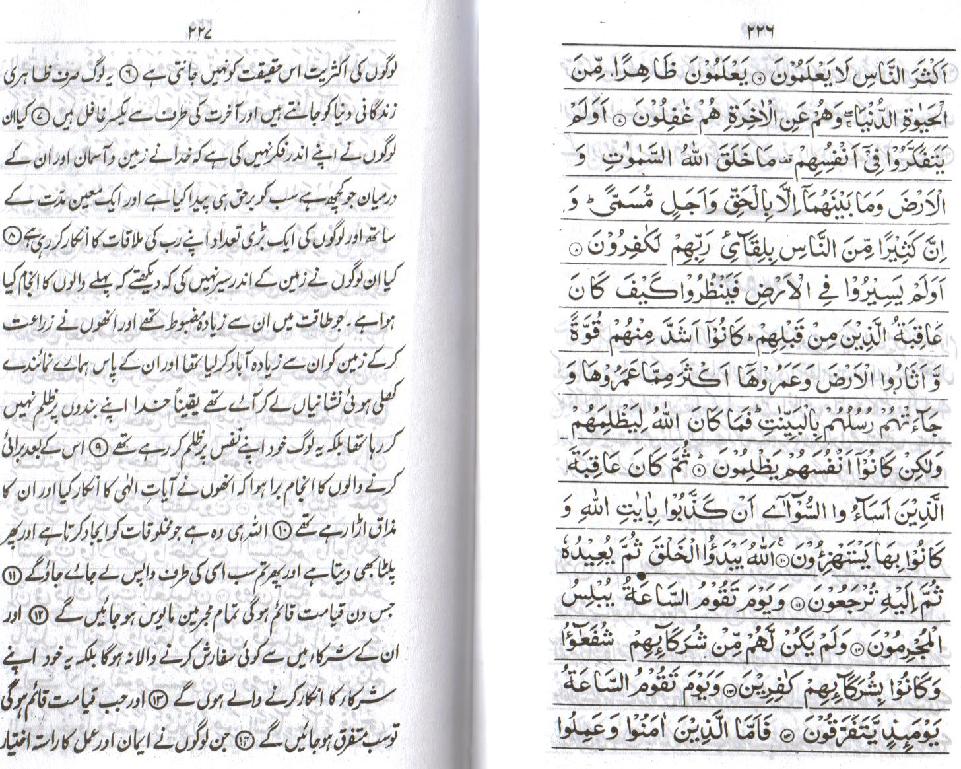 ٢٢٦
اَكْثَرَ النَّاسِ لَا يَعْلَمُوْنَ ۞ يَعْلَمُوْنَ ظَاهِرًا مِّنَ
الْحَيٰوةِ الدُّنْيَا ۖ وَهُمْ عَنِ الْاٰخِرَةِ هُمْ غٰفِلُوْنَ ۞ اَوَلَمْ
يَتَفَكَّرُوْا فِىْٓ اَنْفُسِهِمْ ۗ مَا خَلَقَ اللّٰهُ السَّمٰوٰتِ وَ
الْاَرْضَ وَمَا بَيْنَهُمَآ اِلَّا بِالْحَقِّ وَاَجَلٍ مُّسَمًّى ؕ وَ
اِنَّ كَثِيْرًا مِّنَ النَّاسِ بِلِقَآئِ رَبِّهِمْ لَكٰفِرُوْنَ ۞
اَوَلَمْ يَسِيْرُوْا فِى الْاَرْضِ فَيَنْظُرُوْا كَيْفَ كَانَ
عَاقِبَةُ الَّذِيْنَ مِنْ قَبْلِهِمْ ؕ كَانُوْٓا اَشَدَّ مِنْهُمْ قُوَّةً
وَّ اَثَارُوا الْاَرْضَ وَعَمَرُوْهَآ اَكْثَرَ مِمَّا عَمَرُوْهَا وَ
جَآءَتْهُمْ رُسُلُهُمْ بِالْبَيِّنٰتِ ؕ فَمَا كَانَ اللّٰهُ لِيَظْلِمَهُمْ
وَلٰكِنْ كَانُوْٓا اَنْفُسَهُمْ يَظْلِمُوْنَ ۞ ثُمَّ كَانَ عَاقِبَةَ
الَّذِيْنَ اَسَآءُوا السُّوْٓآٰى اَنْ كَذَّبُوْا بِاٰيٰتِ اللّٰهِ وَ
كَانُوْا بِهَا يَسْتَهْزِءُوْنَ ۞ اَللّٰهُ يَبْدَؤُا الْخَلْقَ ثُمَّ يُعِيْدُهٗ
ثُمَّ اِلَيْهِ تُرْجَعُوْنَ ۞ وَيَوْمَ تَقُوْمُ السَّاعَةُ يُبْلِسُ
الْمُجْرِمُوْنَ ۞ وَلَمْ يَكُنْ لَّهُمْ مِّنْ شُرَكَآئِهِمْ شُفَعٰٓؤُا
وَكَانُوْا بِشُرَكَآئِهِمْ كٰفِرِيْنَ ۞ وَيَوْمَ تَقُوْمُ السَّاعَةُ
يَوْمَئِذٍ يَّتَفَرَّقُوْنَ ۞ فَاَمَّا الَّذِيْنَ اٰمَنُوْا وَعَمِلُوا
٢٢٧
لوگوں کی اکثریت اس حقیقت کو نہیں جانتی ہے ⑥ یہ لوگ صرف ظاہری
زندگانی دنیا کو جانتے ہیں اور آخرت کی طرف سے یکسر غافل ہیں ⑦ کیا ان
لوگوں نے اپنے اندر فکر نہیں کی ہے کہ خدا نے زمین و آسمان اور ان کے
درمیان جو کچھ ہے سب کو برحق ہی پیدا کیا ہے اور ایک معین مدت کے
ساتھ اور لوگوں کی ایک بڑی تعداد اپنے رب کی ملاقات کا انکار کر رہی ہے ⑧
کیا ان لوگوں نے زمین کے اندر سیر نہیں کی کہ دیکھتے کہ پہلے والوں کا انجام کیا
ہوا ہے۔ جو طاقت میں ان سے زیادہ مضبوط تھے اور انھوں نے زراعت
کر کے زمین کو ان سے زیادہ آباد کر لیا تھا اور ان کے پاس ہمارے نمائندے
کھلی ہوئی نشانیاں لے کر آئے تھے یقیناً خدا اپنے بندوں پر ظلم نہیں
کر رہا تھا بلکہ یہ لوگ خود اپنے نفس پر ظلم کر رہے تھے ⑨ اس کے بعد برائی
کرنے والوں کا انجام برا ہوا کہ انھوں نے آیات الٰہی کا انکار کیا اور ان کا
مذاق اڑا رہے تھے ⑩ اللہ ہی وہ ہے جو مخلوقات کو ایجاد کرتا ہے اور پھر
پلٹا بھی دیتا ہے اور پھر تم سب اسی کی طرف واپس لے جائے جاؤ گے ⑪
جس دن قیامت قائم ہوگی تمام مجرمین مایوس ہو جائیں گے ⑫ اور
ان کے شرکاء میں سے کوئی سفارش کرنے والا نہ ہوگا بلکہ یہ خود اپنے
شرکاء کا انکار کرنے والے ہوں گے ⑬ اور جب قیامت قائم ہوگی
تو سب متفرق ہو جائیں گے ⑭ جن لوگوں نے ایمان اور عمل کا راستہ اختیار